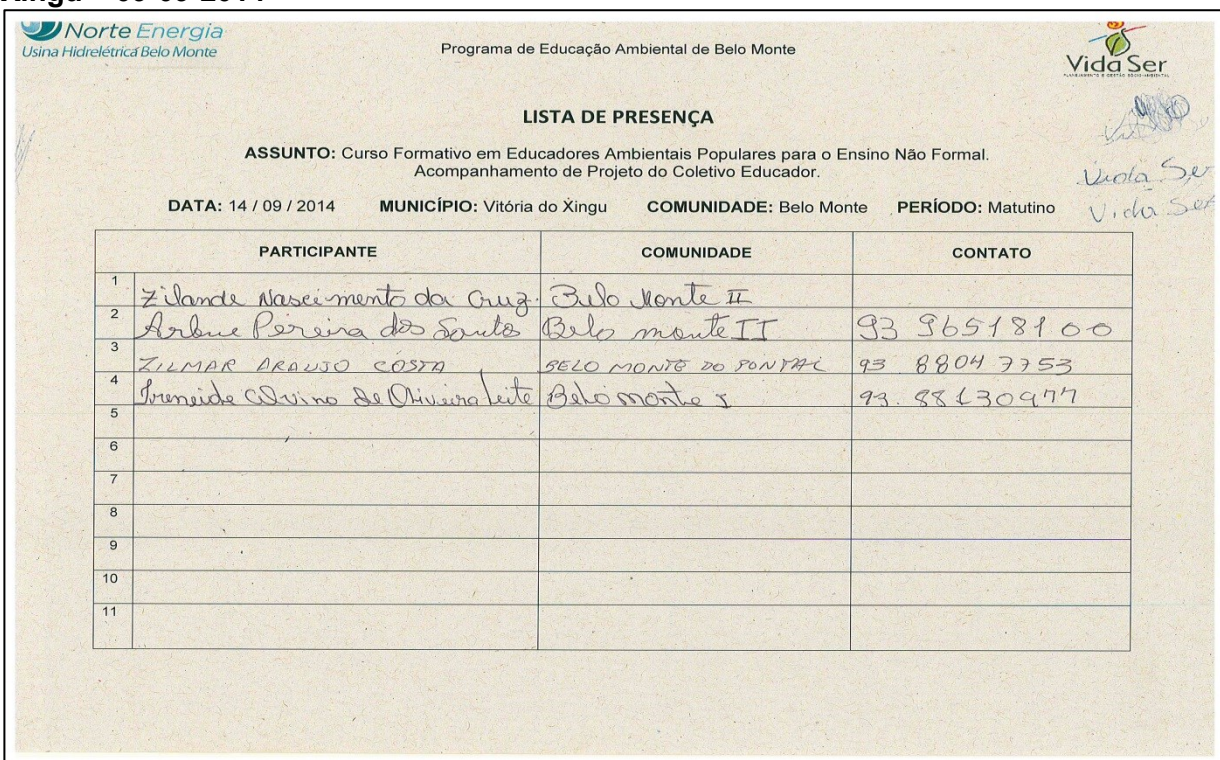 Norte Energia
Usina Hidrelétrica Belo Monte
Programa de Educação Ambiental de Belo Monte
Vida Ser
LISTA DE PRESENÇA
ASSUNTO: Curso Formativo em Educadores Ambientais Populares para o Ensino Não Formal.
Acompanhamento de Projeto do Coletivo Educador.
Vida Ser
DATA: 14 / 09 / 2014 MUNICÍPIO: Vitória do Xingu COMUNIDADE: Belo Monte PERÍODO: Matutino
Vida Ser
PARTICIPANTE COMUNIDADE CONTATO
1 Zilande Nascimento da Cruz Belo Monte II
2 Pereira dos Santos Belo monte II 93 96518100
3 ZILMAR ARAUJO COSTA BELO MONTE DO PONTAL 93 8804 7753
4 de Oliveira Leite Belo monte I 93.
5
6
7
8
9
10
11